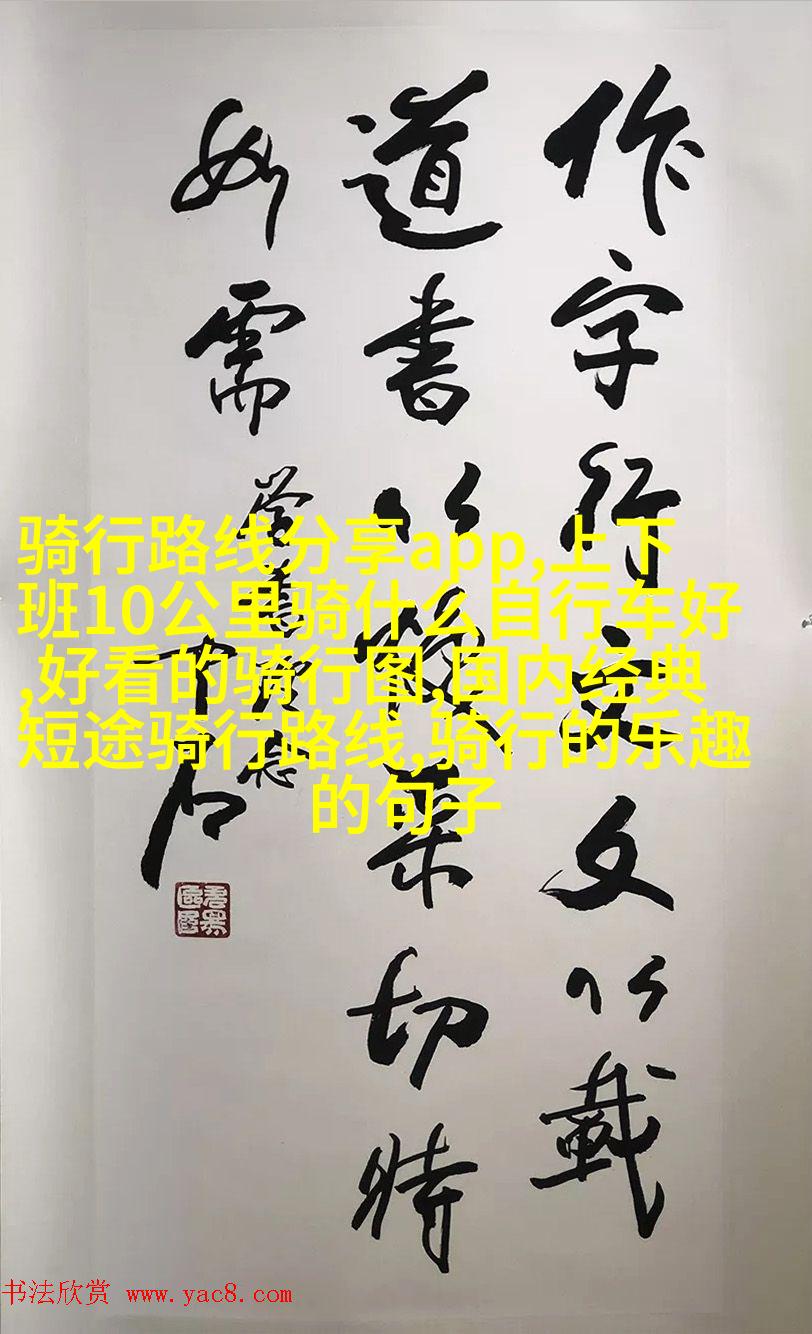 作字行文以載
道書以切時
如需
中石
骑行路线分享app,上下
班10公里骑什么自行车好
,好看的骑行图,国内经典
短途骑行路线,骑行的乐趣
的句子
书法欣赏 www.yac8.com